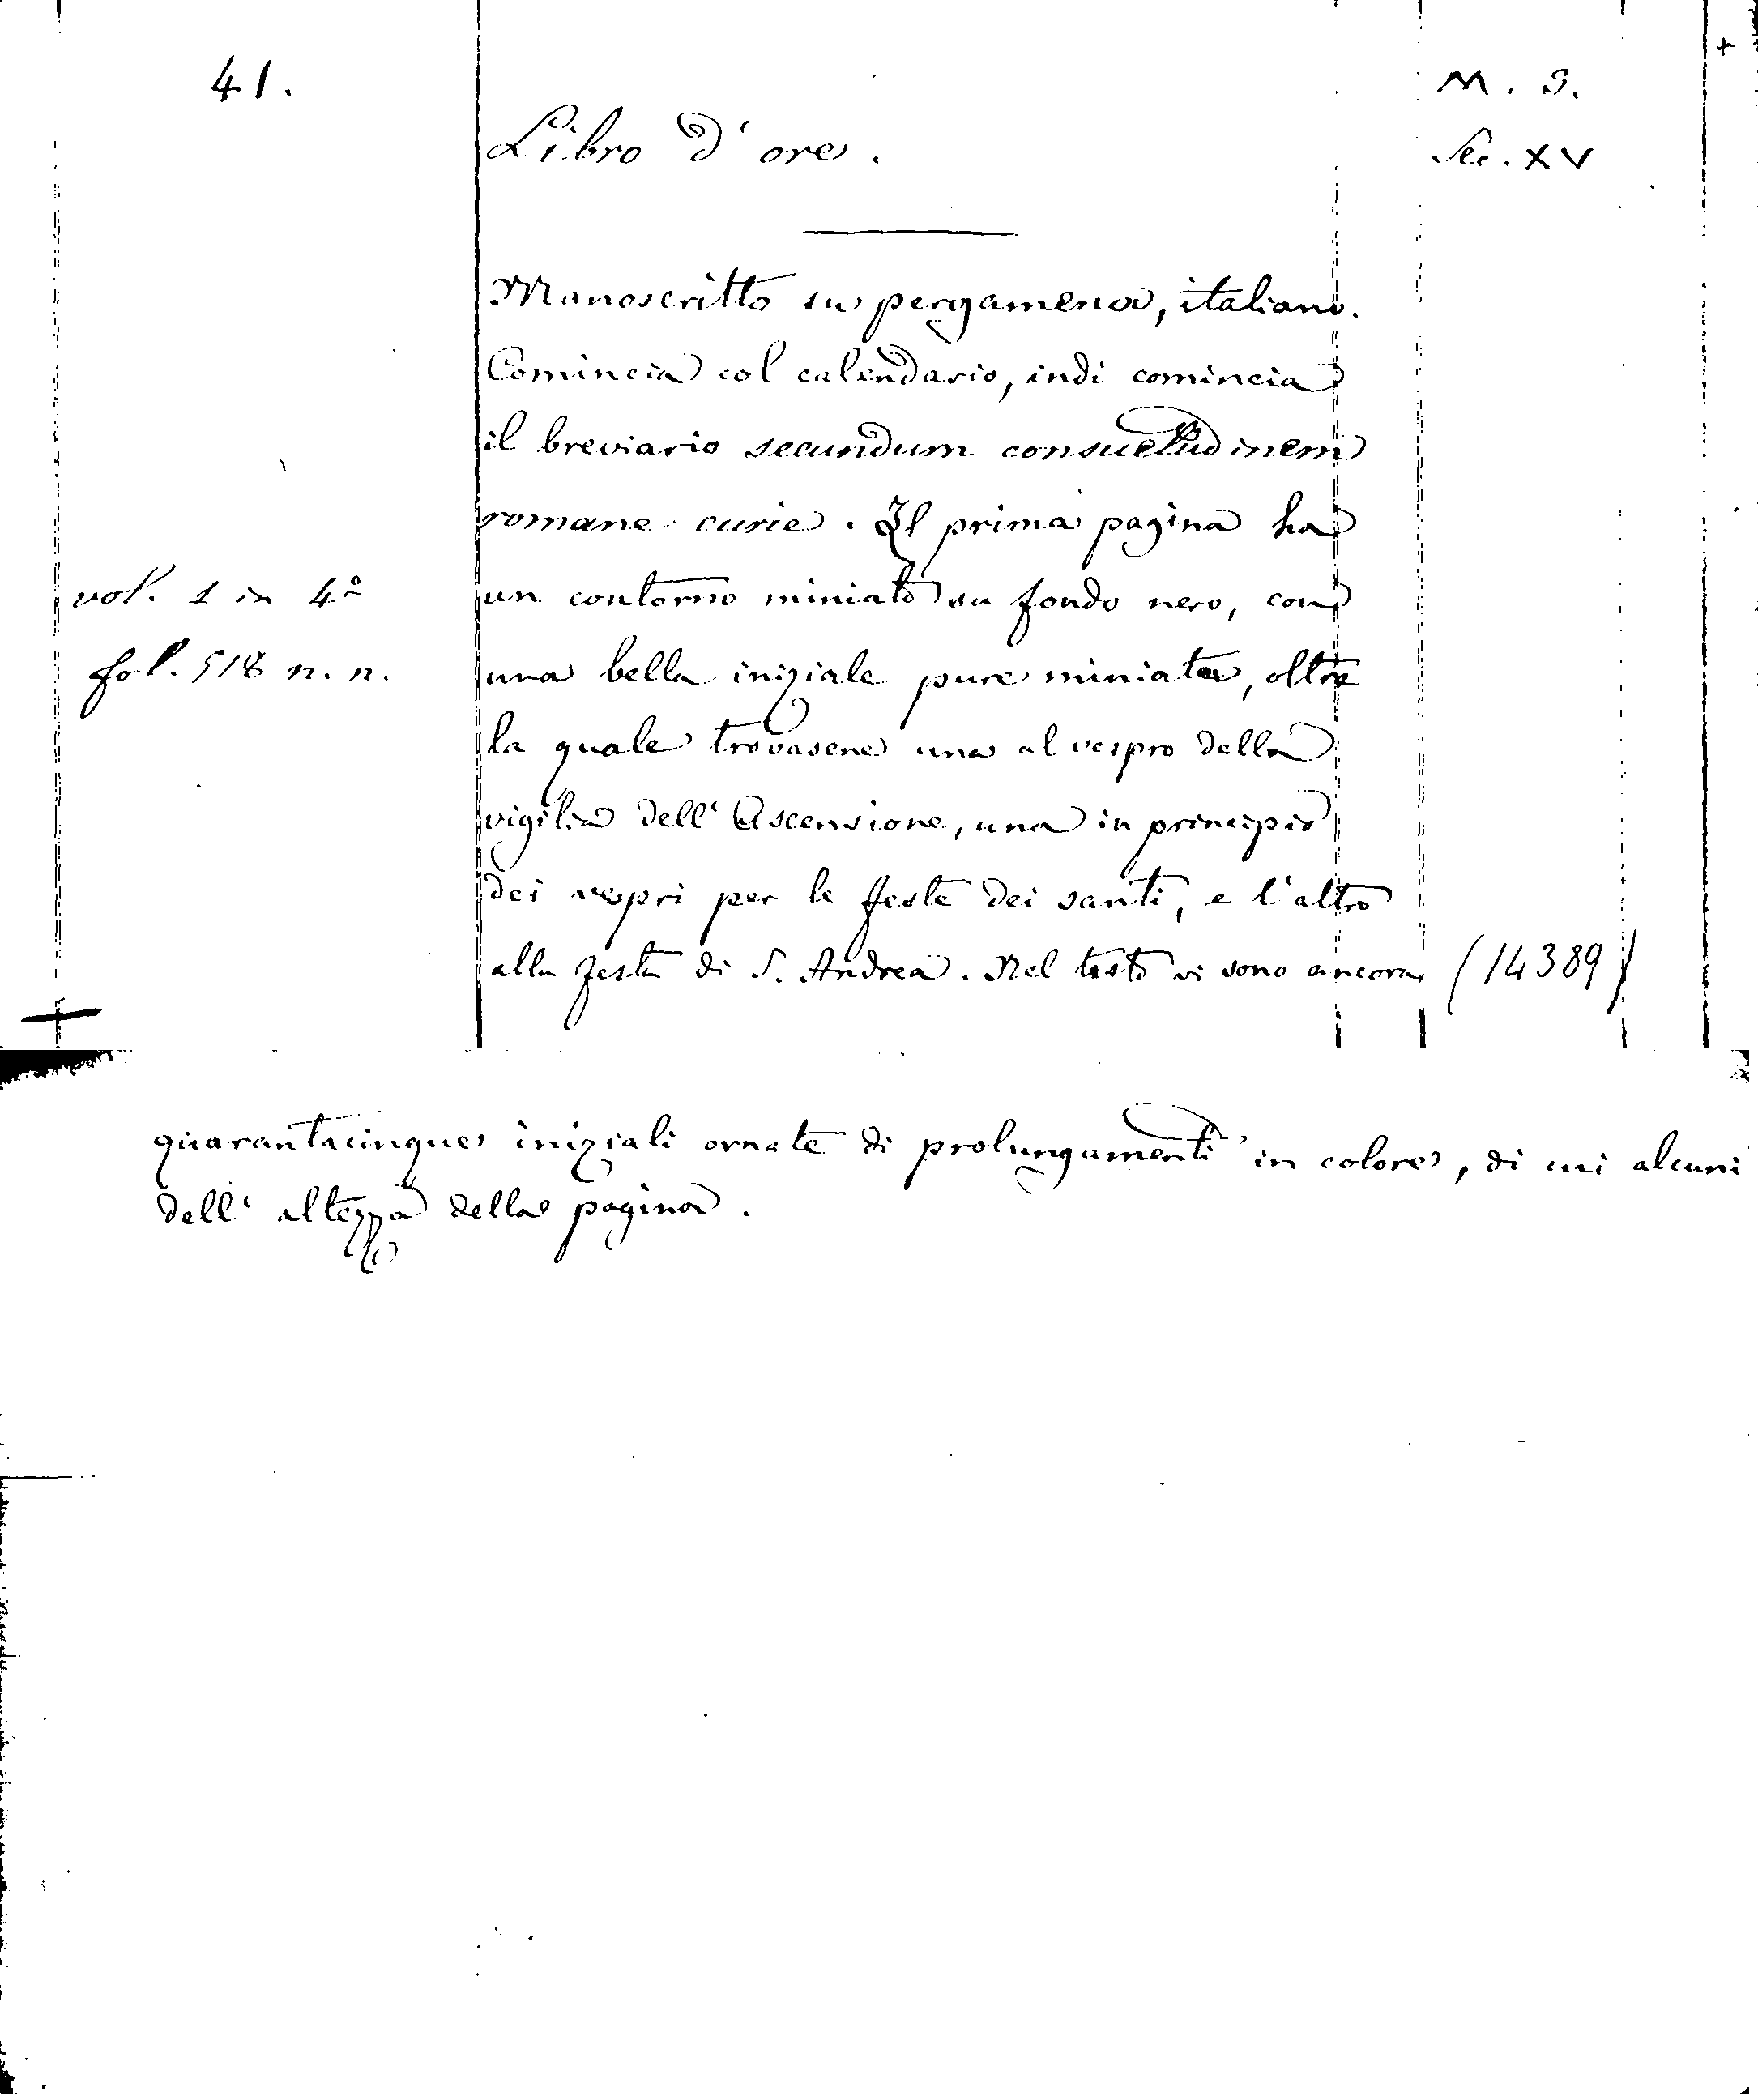 41.
M. S.
Libro d'ore.
Sec. XV
Manoscritto su pergamena, italiano.
Comincia col calendario, indi comincia
il breviario secundum consuetudinem
romane curie. Il prima pagina ha
vol. 1 in 4º
un contorno miniato su fondo nero, con
fol. 518 n. n.
una bella iniziale pure miniata, oltre
la quale trovasene una al vespro della
vigilia dell'Ascensione, una in principio
dei vespri per le feste dei santi, e l'altro
alla festa di S. Andrea. Nel testo vi sono ancora
(14389)
quarantacinque iniziali ornate di prolungamenti in colore, di cui alcuni
dell'altezza della pagina.